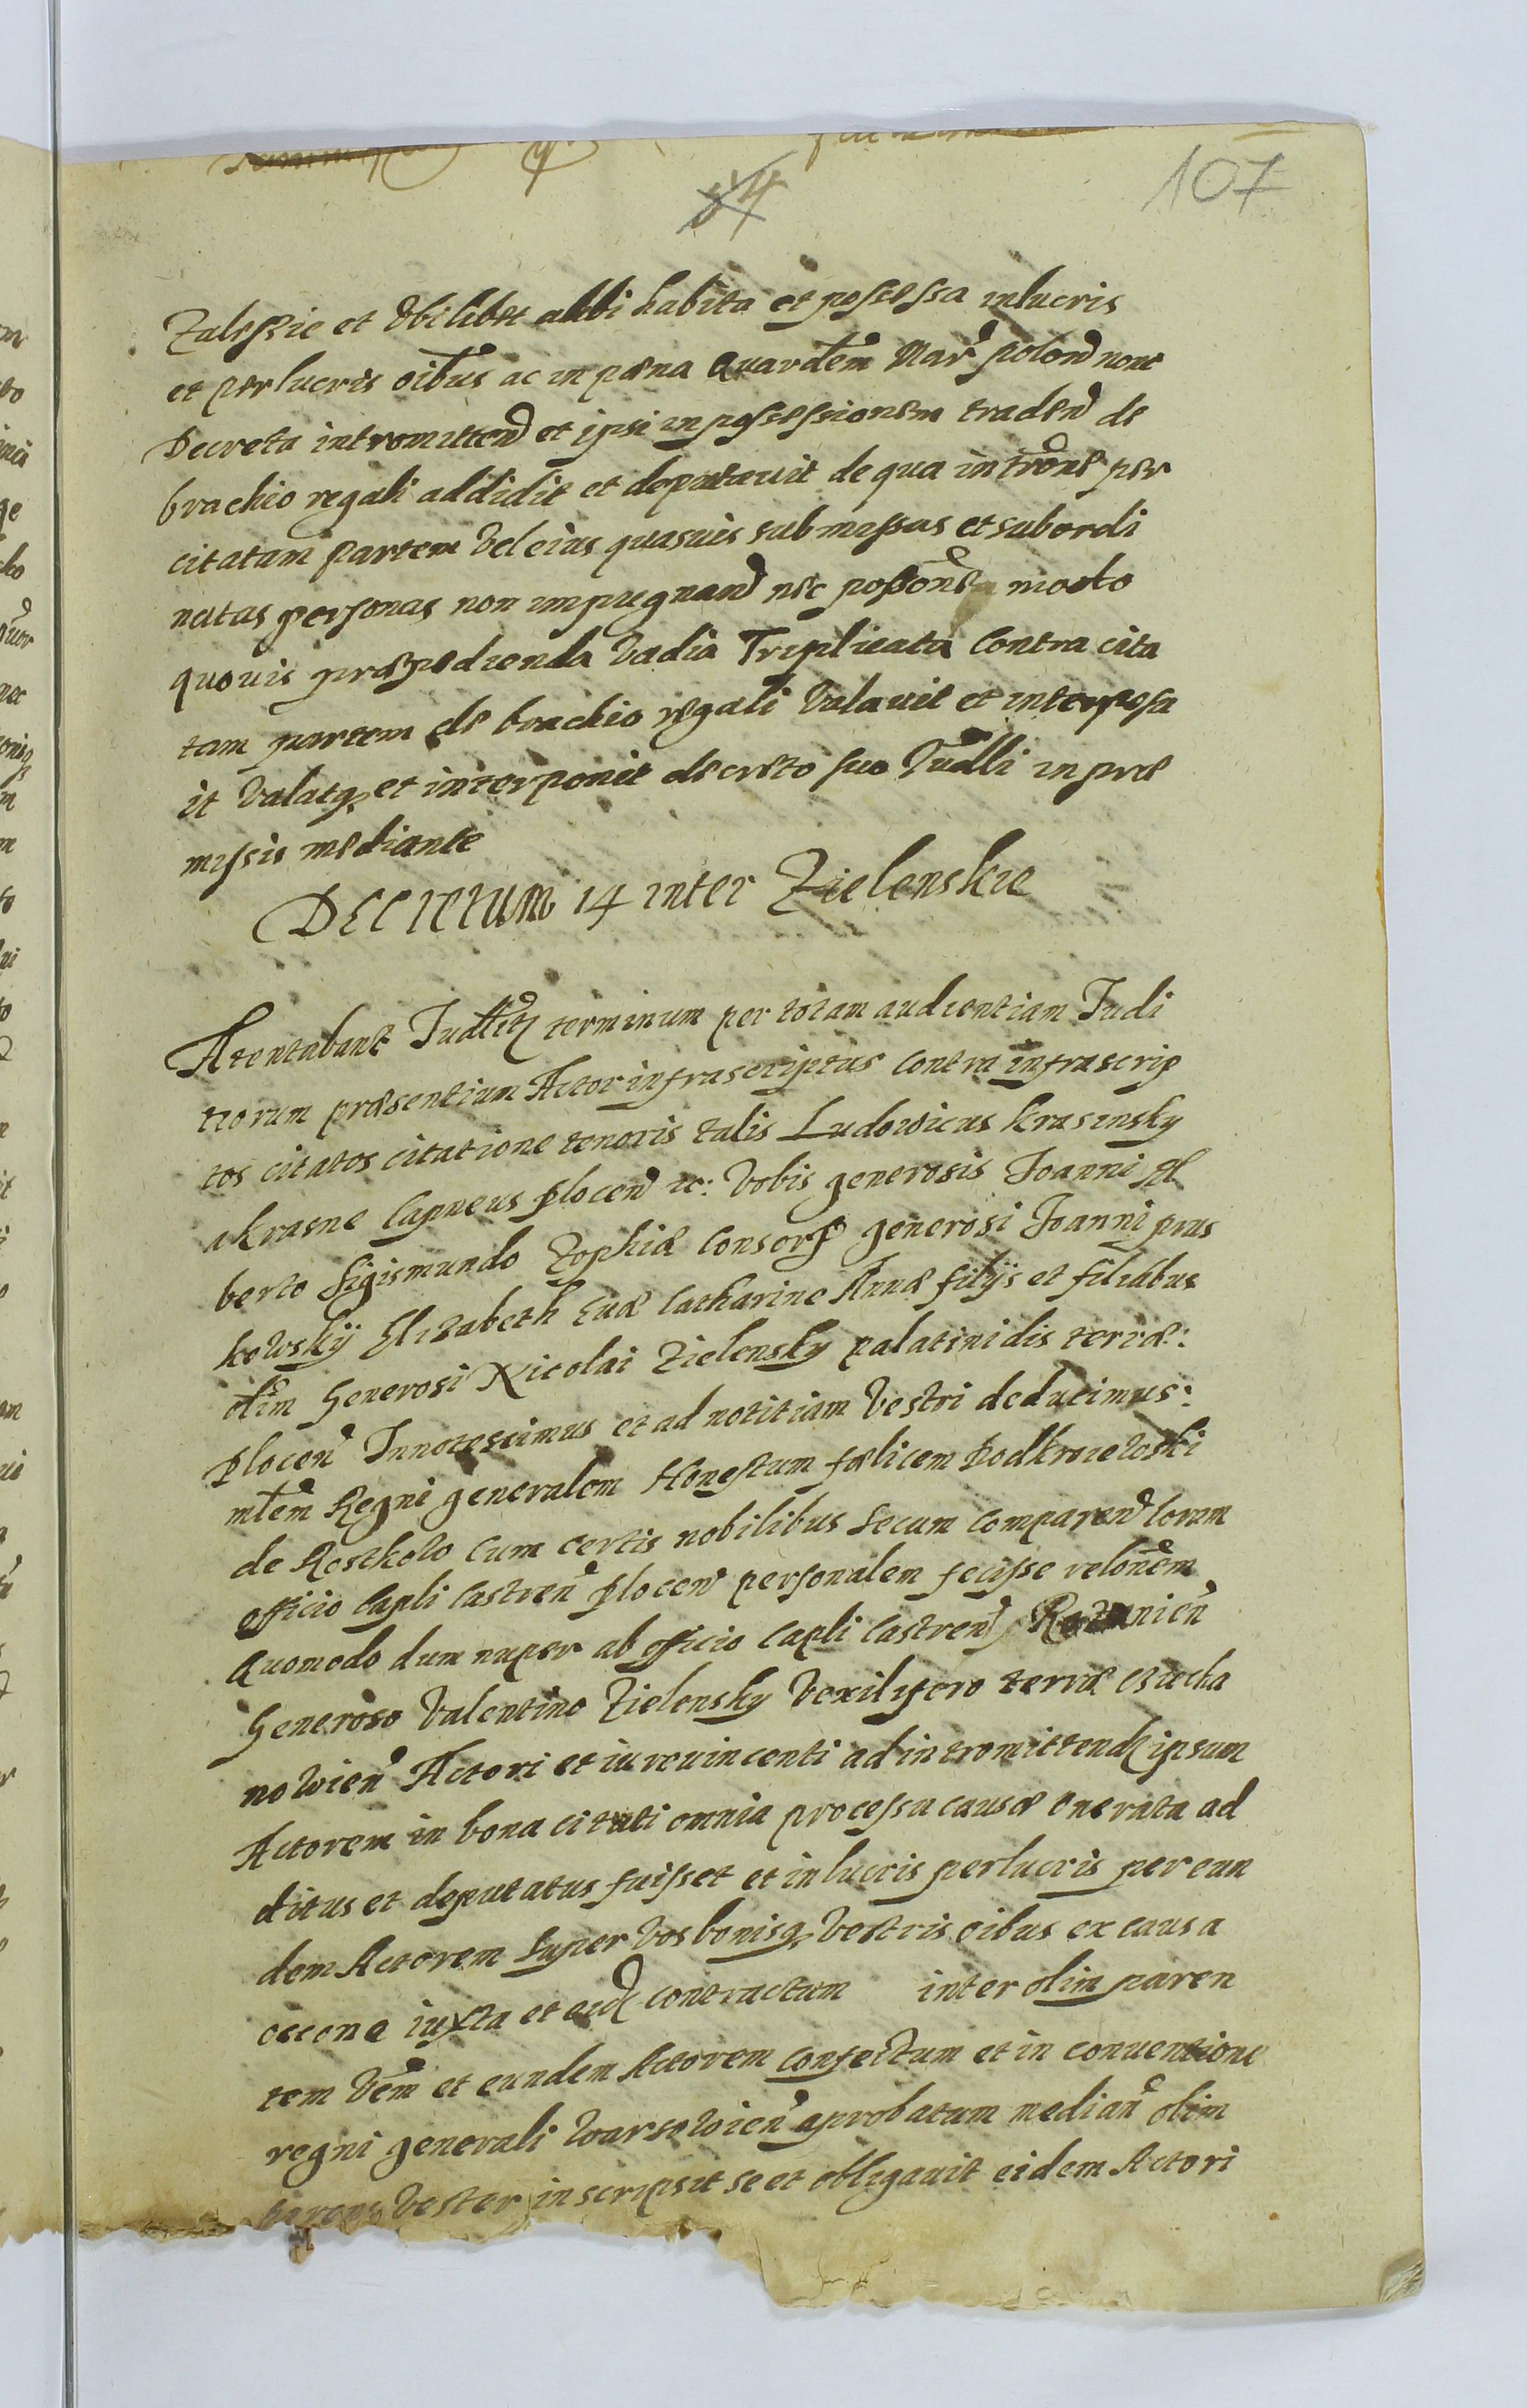 107
84
Zalessie et Vbilibet alibi habita et possessa in lucris
et perlucris oibus ac in pæna quardem Mar polon nonc
Decreta intromitten et ipsi in possessionem traden de
brachio regali addidit et deputavit de qua introne per
citatam partem Vel eius quasuis submissas et subordi
natas personas non impugnand nec possone modo
quovis præpedienda Vadia Triplicata Contra cita
tam partem de brachio regali Valavit et interposu
it Valatq et interponit decreto suo Iudlli in præ
missis mediante
DECRETUM 14 inter Zielenskie
Atentabant Iudltr terminum per totam audientiam Iudi
tiorum præsentium Actor infrascriptus Contra infrascrip
tos citatos citatione tenoris talis Ludovicus Krasinsky
a Krasne Capneus plocen rc: Vobis generosis Joanni Al
berto Sigismundo Zophiæ Consorti generosi Joanni prus
kowskÿ Elizabeth Euæ Catharine Annæ filÿs et filiabus
olim Generosi Nicolai Zielensky palatinidis terræ:
plocen Innotescimus et ad notitiam Vestri deducimus:
mltem Regni generalem Honestum fælicem Podkroiewski
de Rostkow Cum certis nobilibus secum Comparen Coram
officio Capli Castren plocen personalem fecisse relonem
Quomodo dum nuper ab officio Capli Castren Rozanien
Generoso Valentino Zielensky Vexilifero terræ Ciecha
nowien Actori et iurevincenti ad intromittend ipsum
Actorem in bona citati omnia processu causæ onerata ad
ditus et deputatus fuisset et in lucris perlucris per eun
dem Actorem super Vos bonisq Vestris oibus ex causa
occone iuxta et eid contractum inter olim paren
tem Vem et eundem Actorem Confectum et in conventione
regni generali Warsowien aprobatum median olim
parens Vester inscripsit se et obligavit eidem Actori